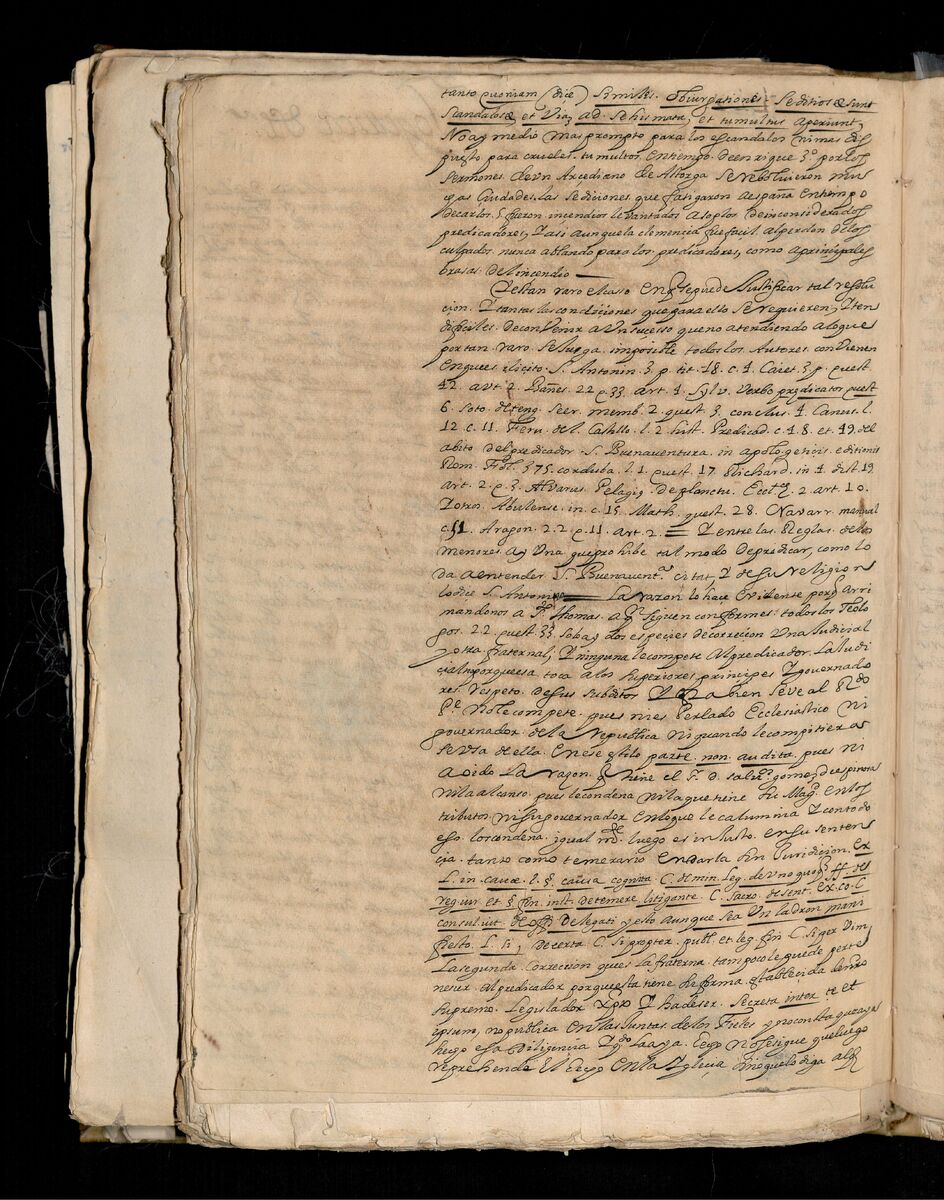 tanto quoniam (dice) similes. obiurgationes. seditiosæ sunt
scandalosæ, et via, ad schismata, et tumultus aperiunt,
No ay medio mas prompto para los escandalos ni mas dis
puesto para crueles. tumultos. en tiempo de enrique 3º por los
sermones. de vn Arcediano de Astorga se rebolvieron mu
chas Ciudades. las sediciones. que fatigaron a españa en tiempo
de carlos. 5 fueron incendios levantados a soplos de inconsiderados
predicadores, y asi aunque la clemencia fue facil al perdon de los
culpados nunca ablando para los predicadores, como a principales
brasas del incendio
Y es tan raro el casso en q̃ se puede Justificar tal resolu
cion. y tantas las condiciones que para ello se requieren, y ten
dificiles de convenir a vn sucesso que no atendiendo a lo que
por tan raro se juzga. imposible todos los Autores convienen
en que es ilicito. S. Antonin. 3 p. tit. 18. c. 4. Caiet. 3. p. quest
42. art. 2. Bañes. 22 q. 33. art. 4. Sylv. verbo predicator quest
6. Soto. de teng. secr. memb. 2. quest. 3. conclus. 4. Canus. l.
12 c. 11. Fern. de l. Castillo. l. 2 hist. Predicad. c. 48. et. 49. del
abito del predicador. S. Buenaventura. in apologeticis. editionis
Rom. Fol. 375. corduba. l. 1. quest. 17. Richard. in 4. dist. 19
art. 2. q. 3. Alvarus Pelagiq. de planctu. Eccl. 2. art. 10.
y otros Abulense. in. c. 15. Math. quest. 28. Navarr. manual
c. 11. Aragon. 2. 2. q. 11. art. 2. = Y entre las Reglas. de los
menores ay una que prohibe tal modo de predicar, como lo
da a entender. S. Buenavent.ª citat. y de su religion
lo dice S. Antonino La razon lo hace evidente porq̃ arri
mandonos a S. Thomas. a q̃ siguen conformes. todos los Teolo
gos. 2.2. quest. 33. solo ay dos especies de correcion una Judicial
y otra fraternal; y ninguna le compete al predicador. La Judi
cial porque essa toca a los superiores principes y governado
res. respeto. de sus subditos y ya bien se ve al Rdo
Pe. no le compete. pues ni es Perlado Ecclesiastico ni
governador de la republica ni quando le compitiera
se usa de ella. en ese estilo parte. non. audita. pues ni
a oido la razon q̃ tiene el S. D. gomez de espinosa
ni la alcanso. pues le condena ni la que tiene su Mag.d en los
tributos ni su governador en lo que le calumnia y con todo
esso. los condena. igual mte luego es injusto. en su senten
cia. tanto como temerario en darla sin Juridicion. Ex
L. in. cauæ. l. §. causa. cognita C. de min.
reg. iur. et § fin. inst. de temere. litigante. C. sacro. de sent. Ex. co. C.
consuluit. de offi. delegati y esto aunque sea un ladron mani
fiesto. L. si, de certa C. si propter. publ. et leg. fin C. siger vim,
La segunda. Correccion que es la fraterna. tampoco le puede perte
neser. al predicador porque esta tiene su forma. establecida
supremo. Legislador xpo y ha de ser. Secreta inter te et
ipsum, no publica en las Juntas. de los Fieles y no consta que aya
hecho essa diligencia y qdo la aya. hecho no se sigue que luego
reprehenda el hecho en la Yglesia sino que lo diga al